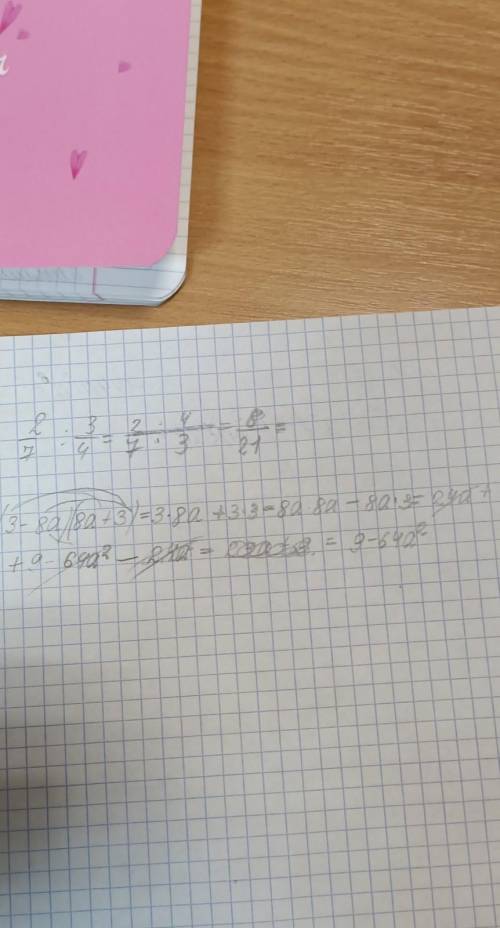 2/7 : 3/4 = 2/7 · 4/3 = 8/21 =
(3-8a)(8a+3)=3·8a+3·3-8a·8a-8a·3=24a+
+9-64a²-24a= = 9-64a²